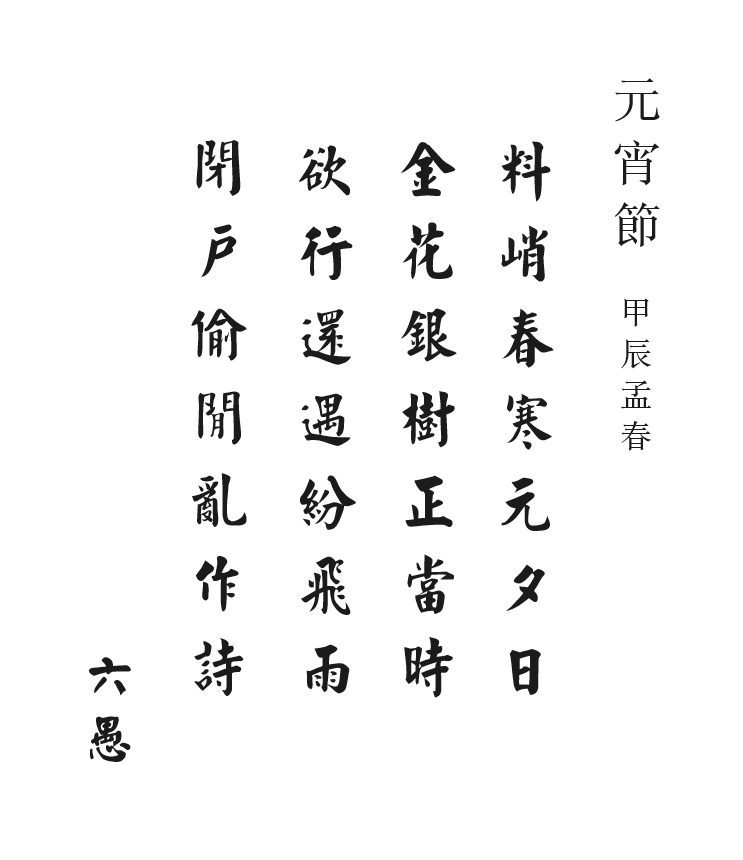 元宵節 甲辰孟春
料峭春寒元夕日
金花銀樹正當時
欲行還遇紛飛雨
閉戶偷閒亂作詩
六愚